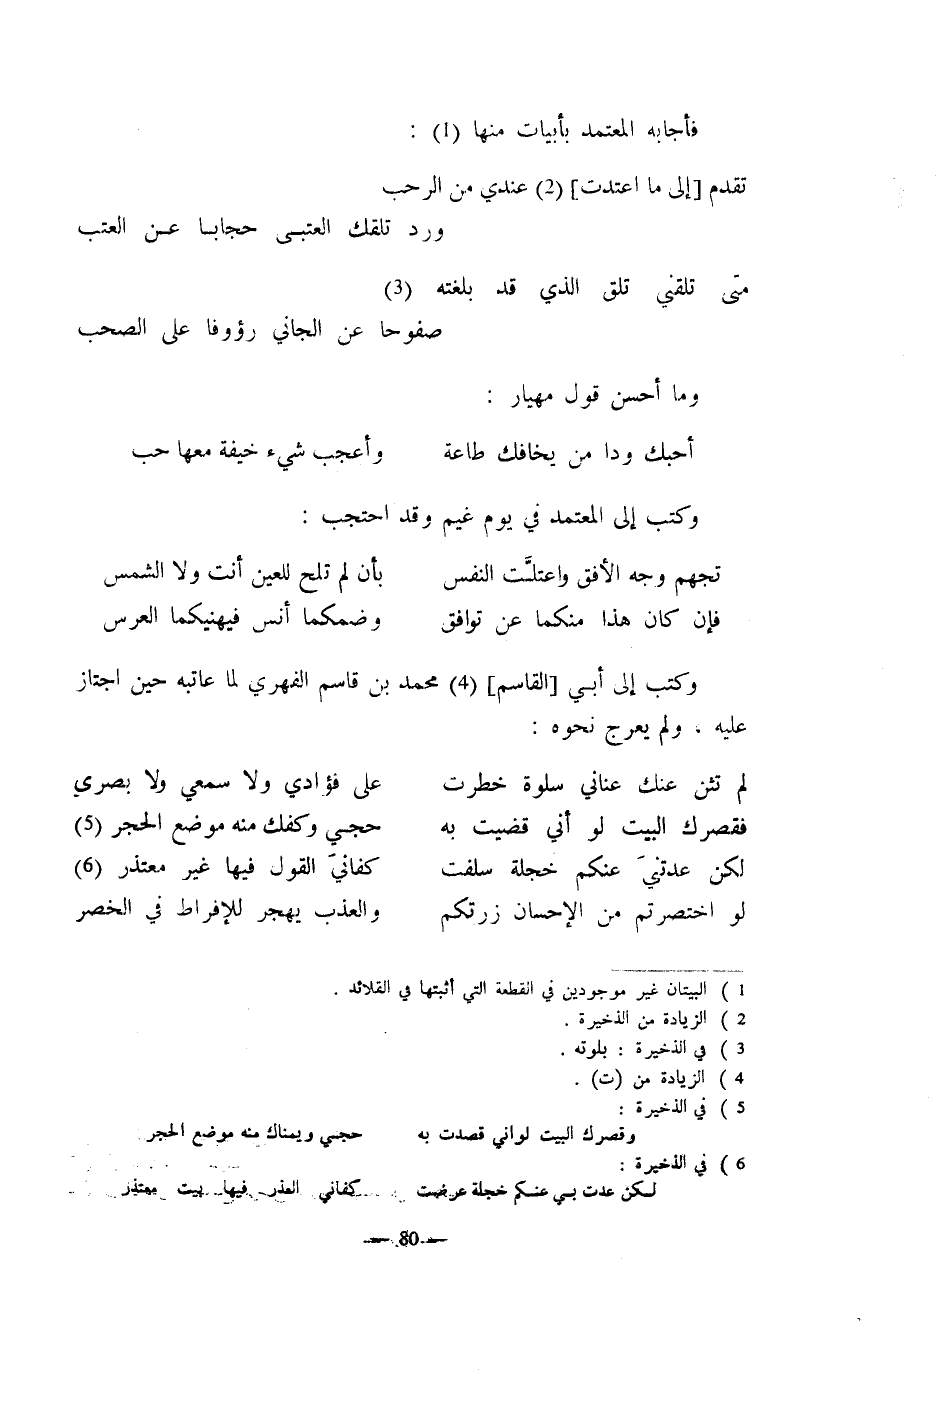 فأجابه المعتمد بأبيات منها (1) :
تقدم [إلى ما اعتدت] (2) عندي من الرحب
ورد تلقك العتبى حجابا عن العتب
متى تلقني تلق الذي قد بلغته (3)
صفوحا عن الجاني رؤوفا على الصحب
وما أحسن قول مهيار :
أحبك ودا من يخافك طاعة وأعجب شيء خيفة معها حب
وكتب إلى المعتمد في يوم غيم وقد احتجب :
تجهم وجه الأفق واعتلَّت النفس بأن لم تلح للعين أنت ولا الشمس
فإن كان هذا منكما عن توافق وضمكما أنس فيهنيكما العرس
وكتب إلى أبي [القاسم] (4) محمد بن قاسم الفهري لما عاتبه حين اجتاز
عليه ، ولم يعرج نحوه :
لم تثن عنك عناني سلوة خطرت على فؤادي ولا سمعي ولا بصري
فقصرك البيت لو أني قضيت به حجي وكفك منه موضع الحجر (5)
لكن عدتنيَ عنكم خجلة سلفت كفانيَ القول فيها غير معتذر (6)
لو اختصرتم من الإحسان زرتكم والعذب يهجر للإفراط في الخصر
1 ) البيتان غير موجودين في القطعة التي أثبتها في القلائد .
2 ) الزيادة من الذخيرة .
3 ) في الذخيرة : بلوته .
4 ) الزيادة من (ت) .
5 ) في الذخيرة :
وقصرك البيت لواني قصدت به حجي ويمناك منه موضع الحجر
6 ) في الذخيرة :
لكن عدت بي عنكم خجلة عرضت كفاني العذر فيها بيت معتذر
— 80 —